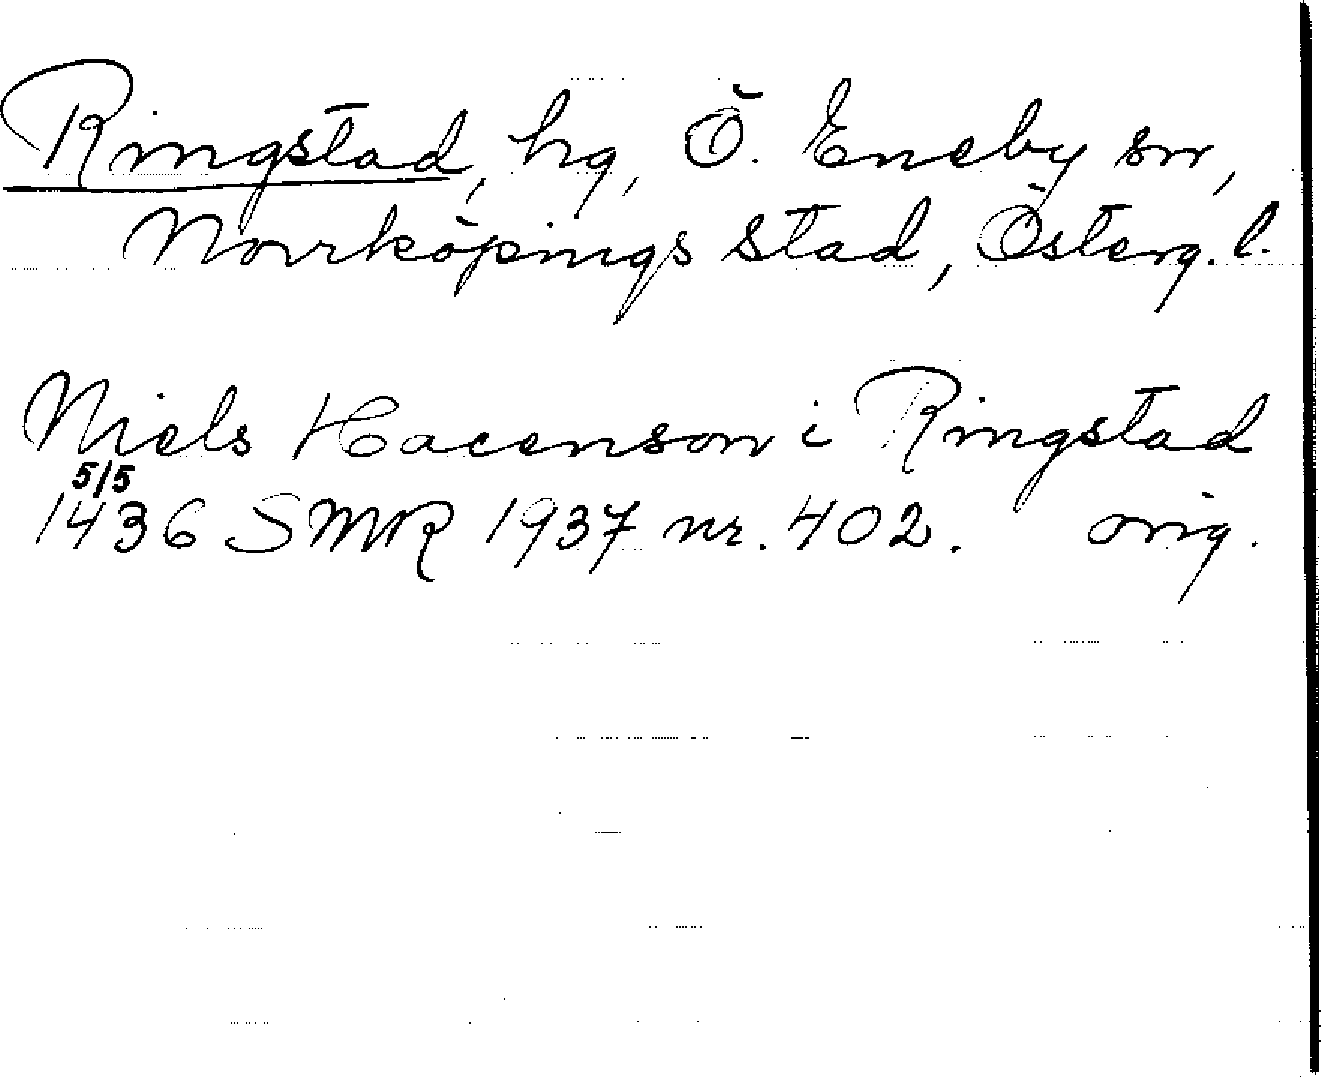 Ringstad, hg, Ö. Eneby sn,
Norrköpings stad, Österg. l.
Niels Hacenson i Ringstad
5/5
1436 SMR 1937 nr. 402. orig.